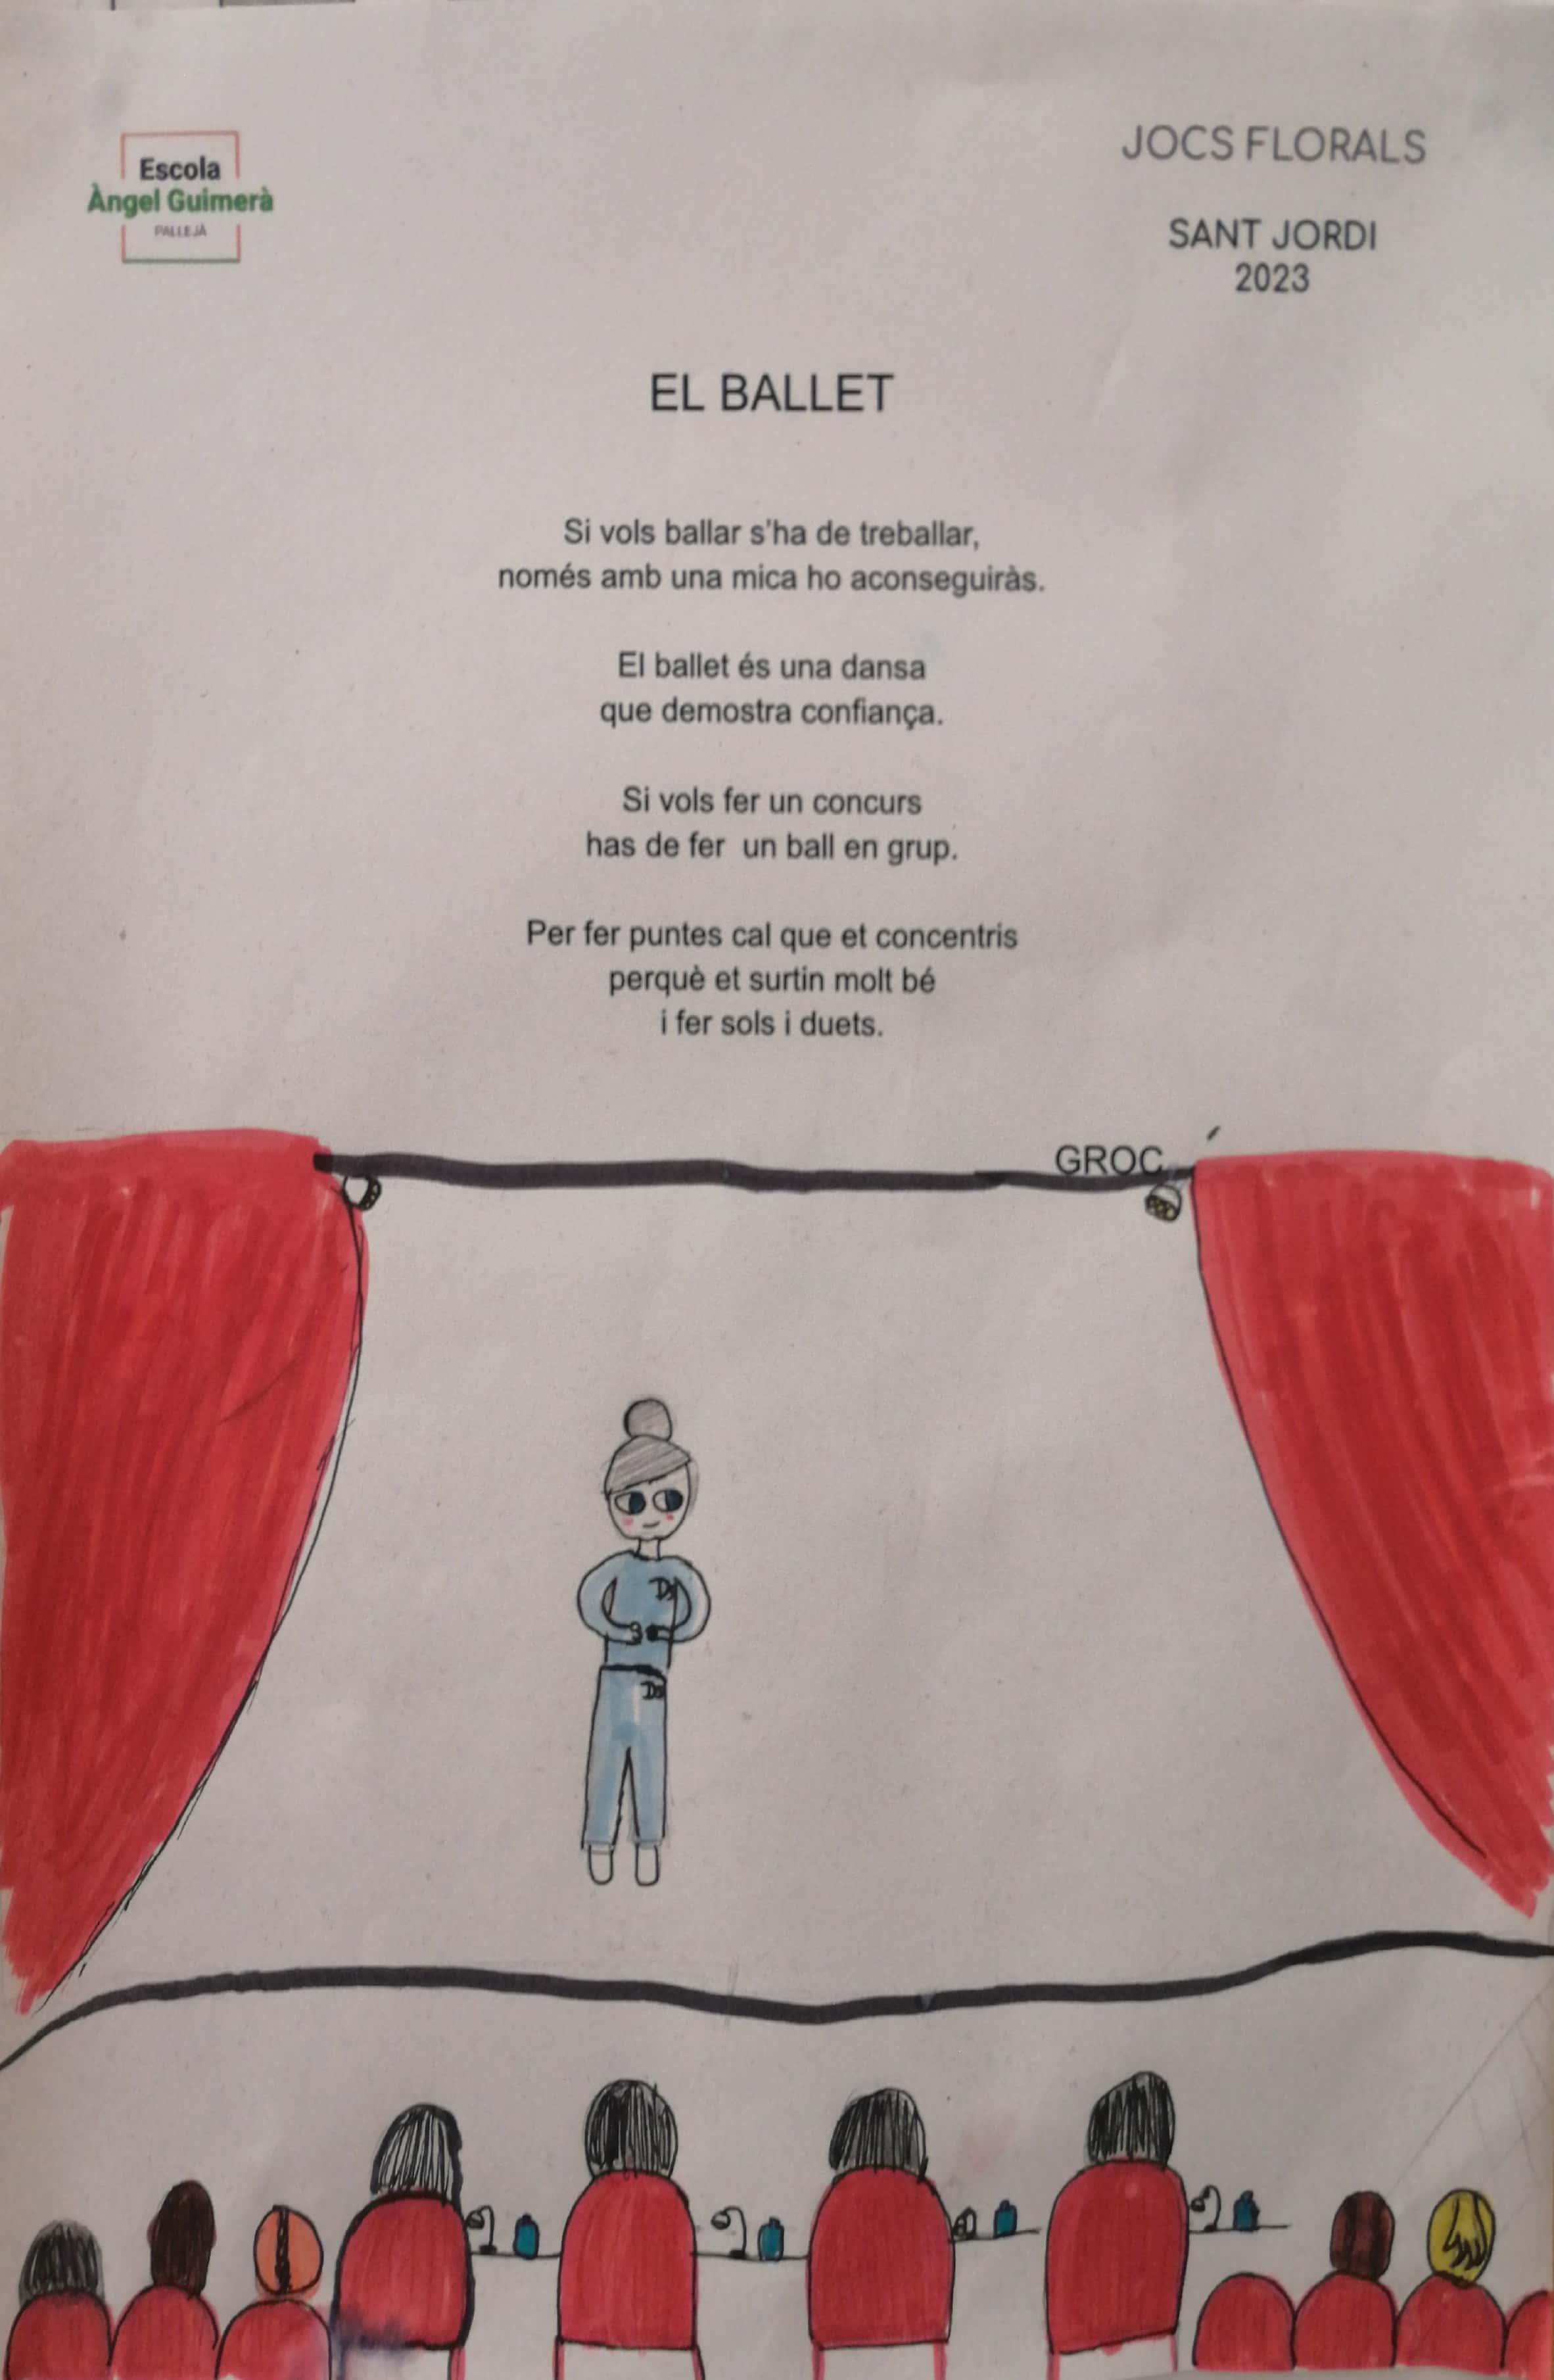 Escola
Àngel Guimerà
PALLEJÀ
JOCS FLORALS
SANT JORDI
2023
EL BALLET
Si vols ballar s'ha de treballar,
només amb una mica ho aconseguiràs.
El ballet és una dansa
que demostra confiança.
Si vols fer un concurs
has de fer un ball en grup.
Per fer puntes cal que et concentris
perquè et surtin molt bé
i fer sols i duets.
GROC